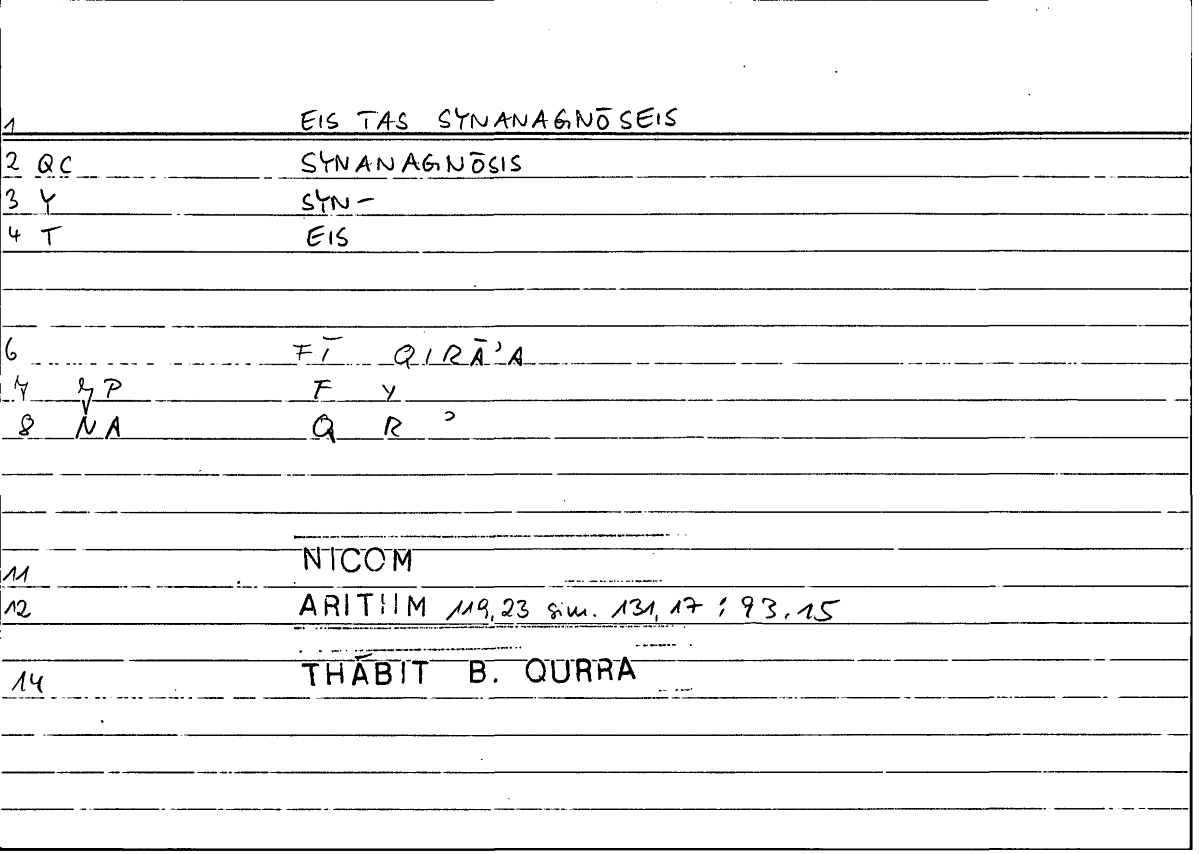 1 EIS TAS SYNANAGNŌSEIS
2 QC SYNANAGNŌSIS
3 Y SYN-
4 T EIS
6 FĪ QIRĀ'A
7 P F Y
8 NA Q R ʾ
11 NICOM
12 ARITHM 119,23 sim. 131,17 : 93.15
14 THĀBIT B. QURRA